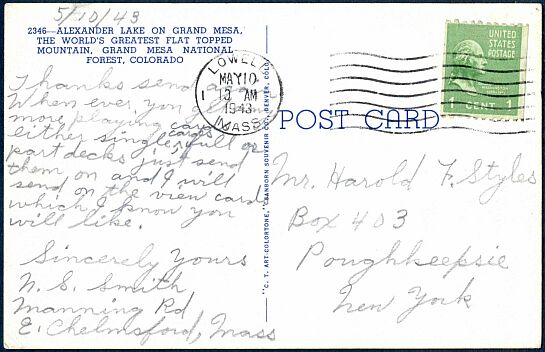 5/10/43
2346—ALEXANDER LAKE ON GRAND MESA,
THE WORLD'S GREATEST FLAT TOPPED
MOUNTAIN, GRAND MESA NATIONAL
FOREST, COLORADO
Thanks send again
When ever you get
more playing cards
either singles, full or
part decks just send
them on and I will
send on the view cards
which I know you
will like.
Sincerely Yours
N. S. Smith
Manning Rd
E. Chelmsford, Mass
"C. T. ART-COLORTONE," SANBORN SOUVENIR CO., DENVER, COLO.
LOWELL
MAY 10
1943
MASS.
UNITED
STATES
POSTAGE
WASHINGTON
1 CENT 1
POST CARD
Mr. Harold F. Styles
Box 403
Poughkeepsie
New York